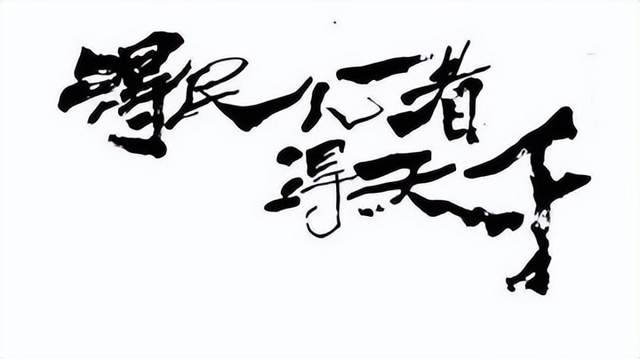 得民心者
得天下